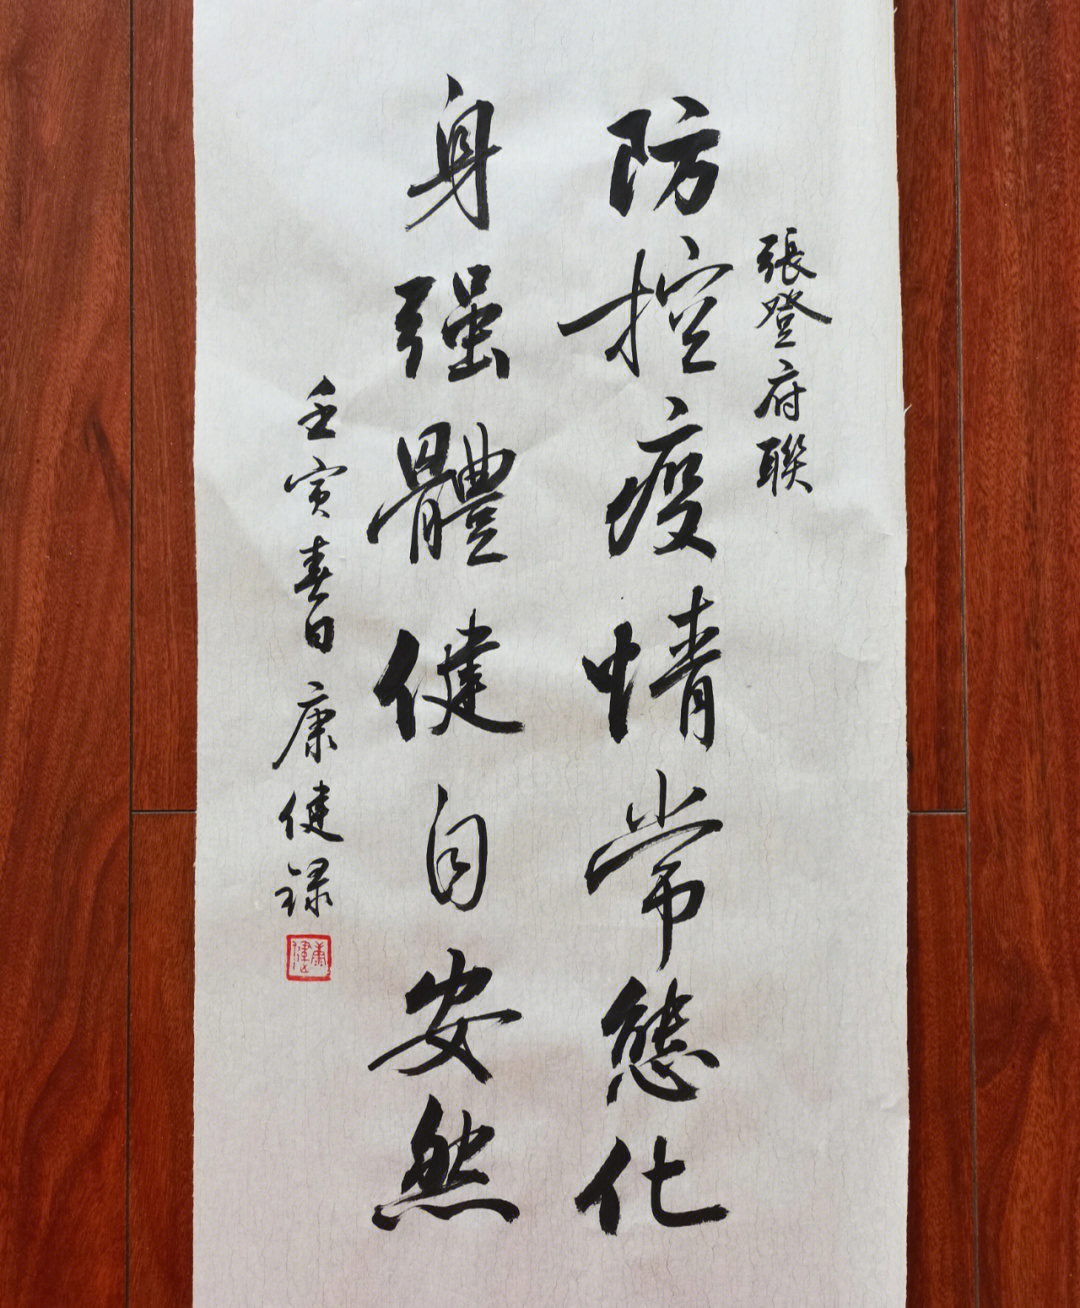 張登府聯
防控疫情常態化
身强體健自安然
壬寅春日康健録
康健